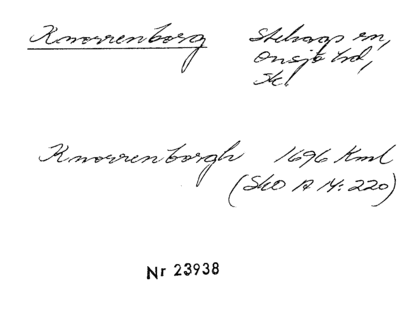 Knorrenborg Stehags sn,
Onsjö hd,
Sk
Knorrenborgh 1696 Kml
(SkO A 14:220)
Nr 23938